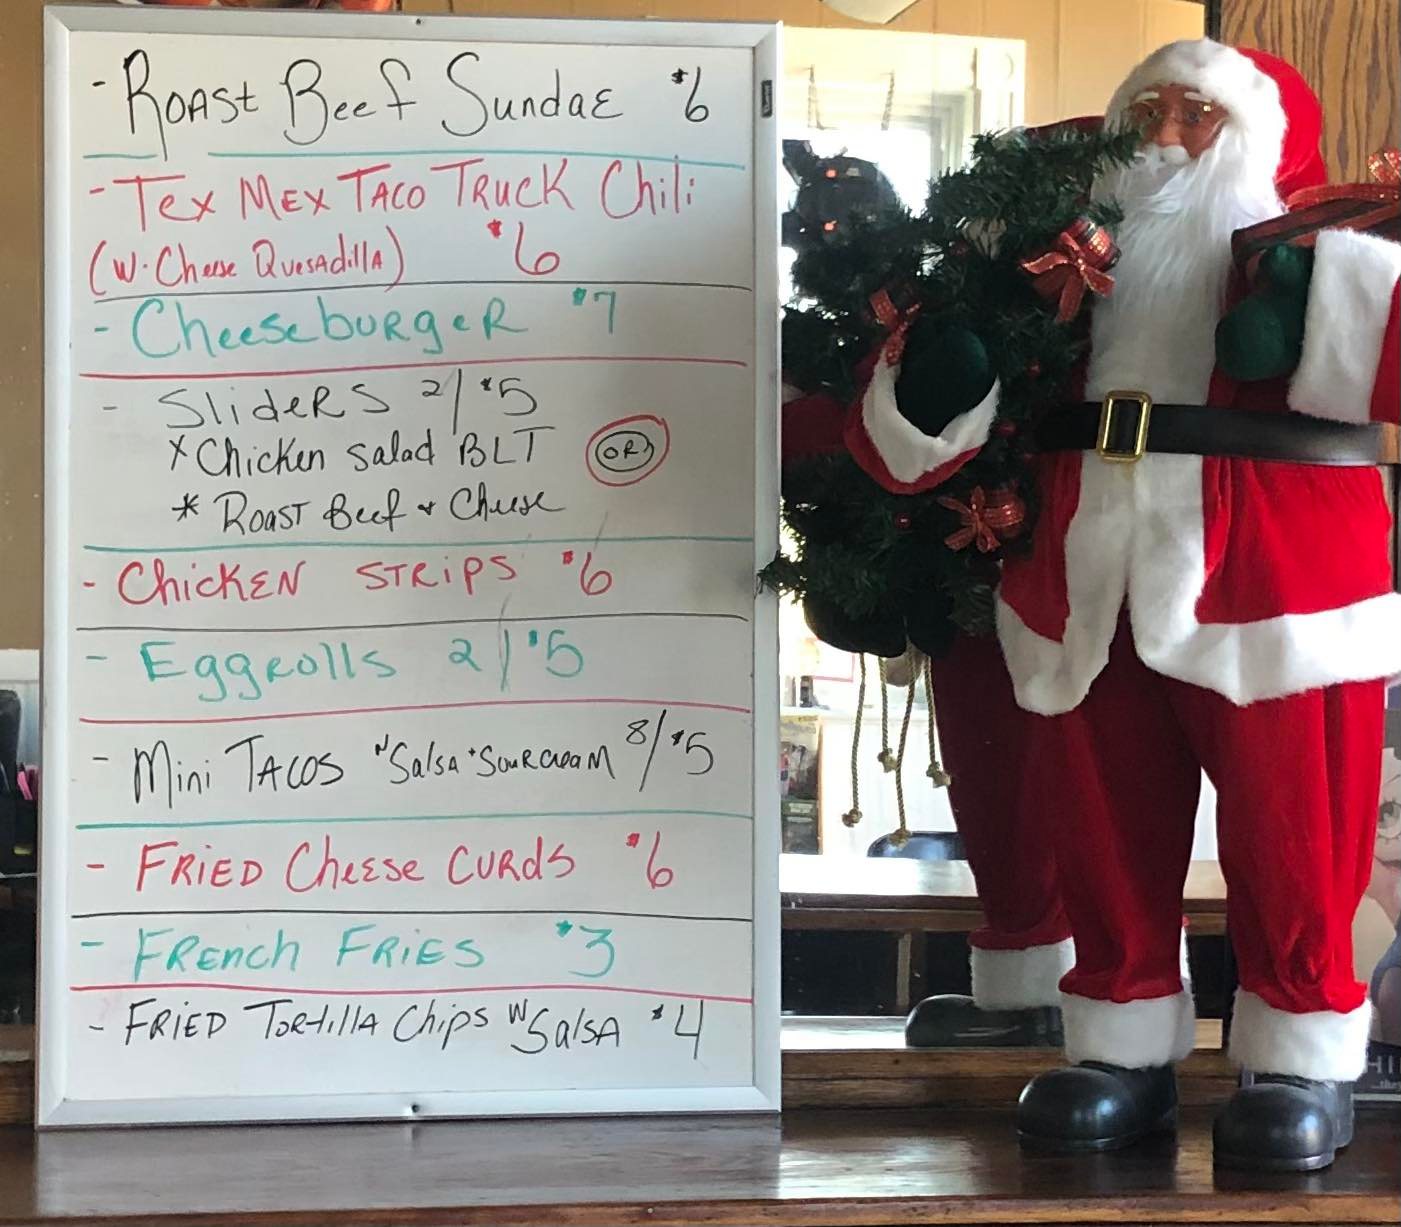 - Roast Beef Sundae $6
- Tex Mex Taco Truck Chili
(w. Cheese Quesadilla) $6
- Cheeseburger $7
- Sliders 2/$5
* Chicken Salad BLT (OR)
* Roast Beef + Cheese
- Chicken Strips $6
- Eggrolls 2/$5
- Mini Tacos w Salsa + Sour Cream 8/$5
- Fried Cheese Curds $6
- French Fries $3
- Fried Tortilla Chips w Salsa $4